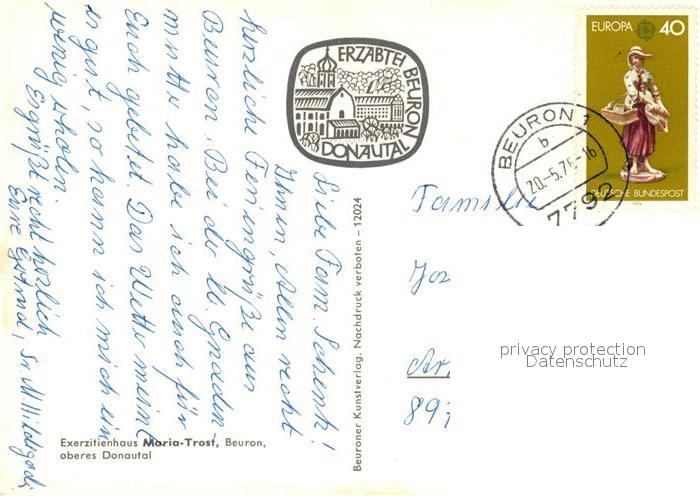 Liebe Fam. Schenk!
Ihnen, Allen recht
herzliche Feriengrüße aus
Beuron. Bei der lb. Gnaden-
mutter habe ich auch für
Euch gebetet. Das Wetter meint
es gut, so kann ich mich ein
wenig erholen.
Es grüßt recht herzlich
Eure Gertrud, Sr. M. Hildegard.
Exerzitienhaus Maria-Trost, Beuron,
oberes Donautal
Beuroner Kunstverlag. Nachdruck verboten – 12024
ERZABTEI BEURON
DONAUTAL
BEURON 1
b
20.-5.76-16
7792
EUROPA 40
DEUTSCHE BUNDESPOST
1976
Familie
Jos
897
privacy protection
Datenschutz